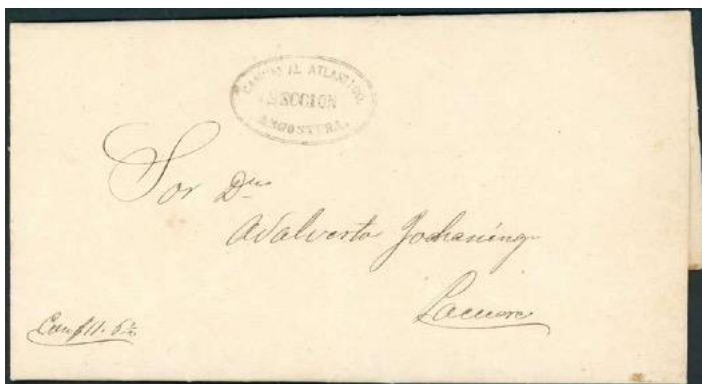 CAMINO AL ATLANTICO.
SECCION
ANGOSTURA.
Sor Dn
Adalverto Johaning
Con $11.